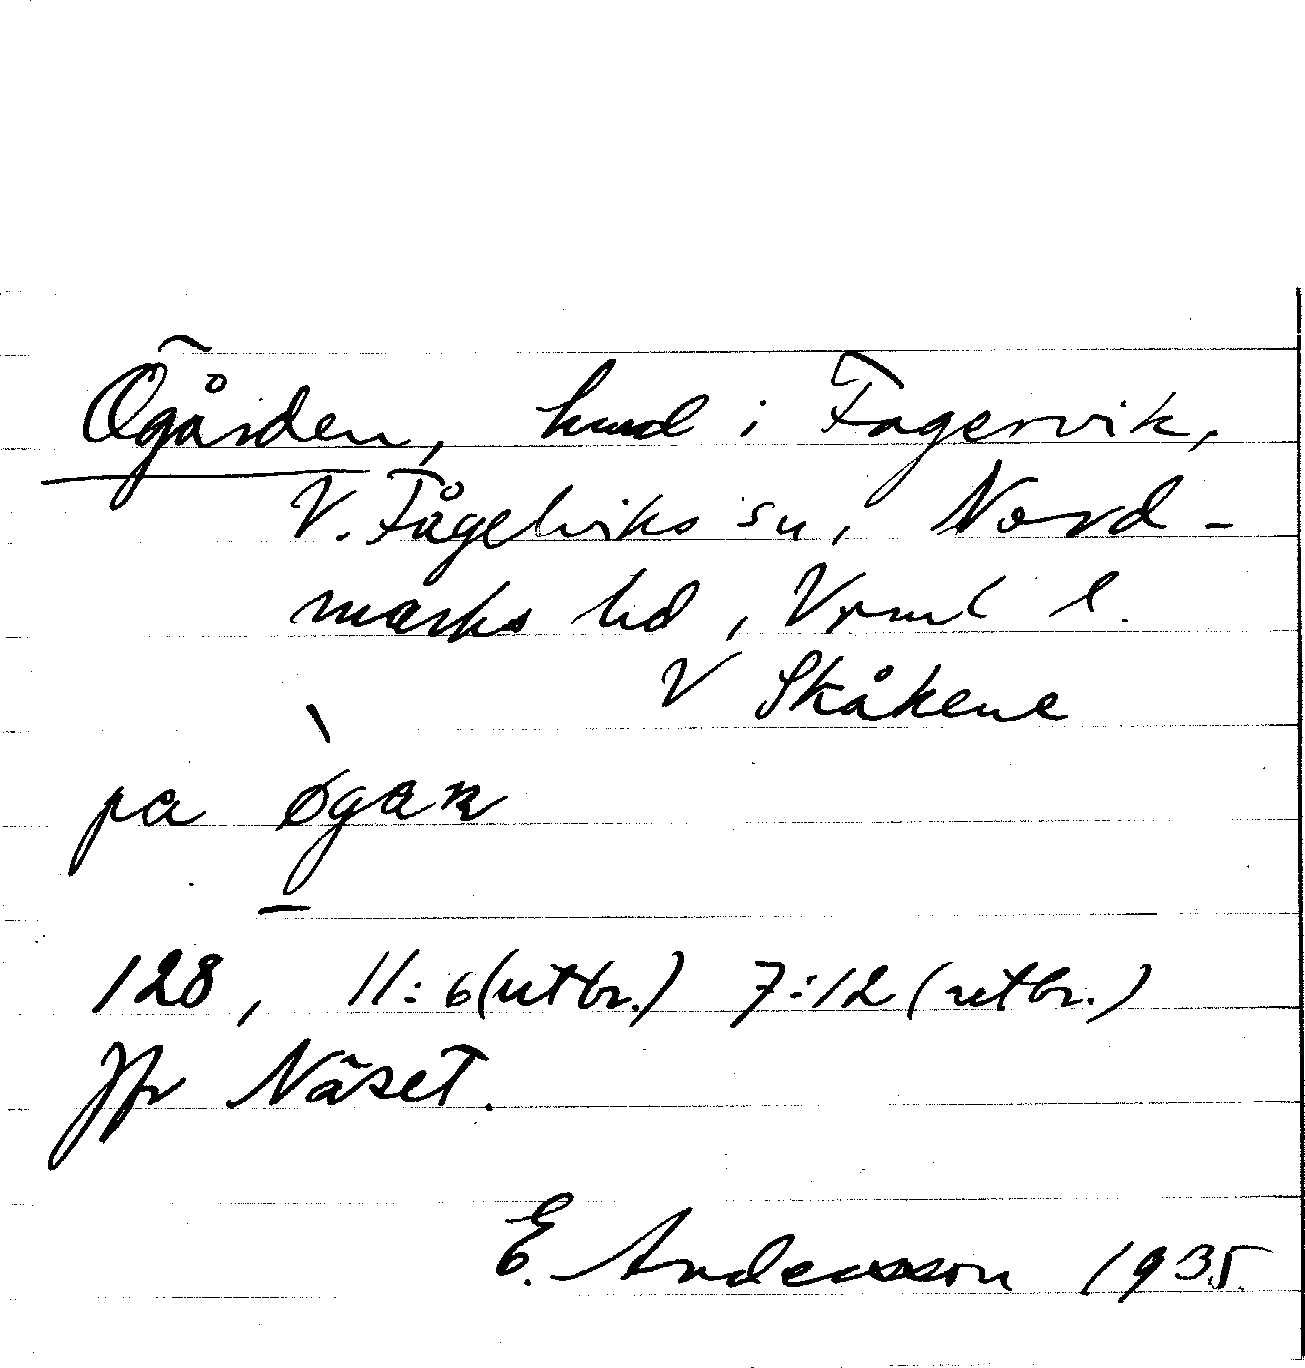 Ögården, hmd i Fagervik,
V. Fågelviks sn, Nord-
marks hd, Vrml l.
V Skåkene
på øgaɴ
128, 11:6(utbr.) 7:12 (utbr.)
Jfr Näset.
E. Andersson 1935.